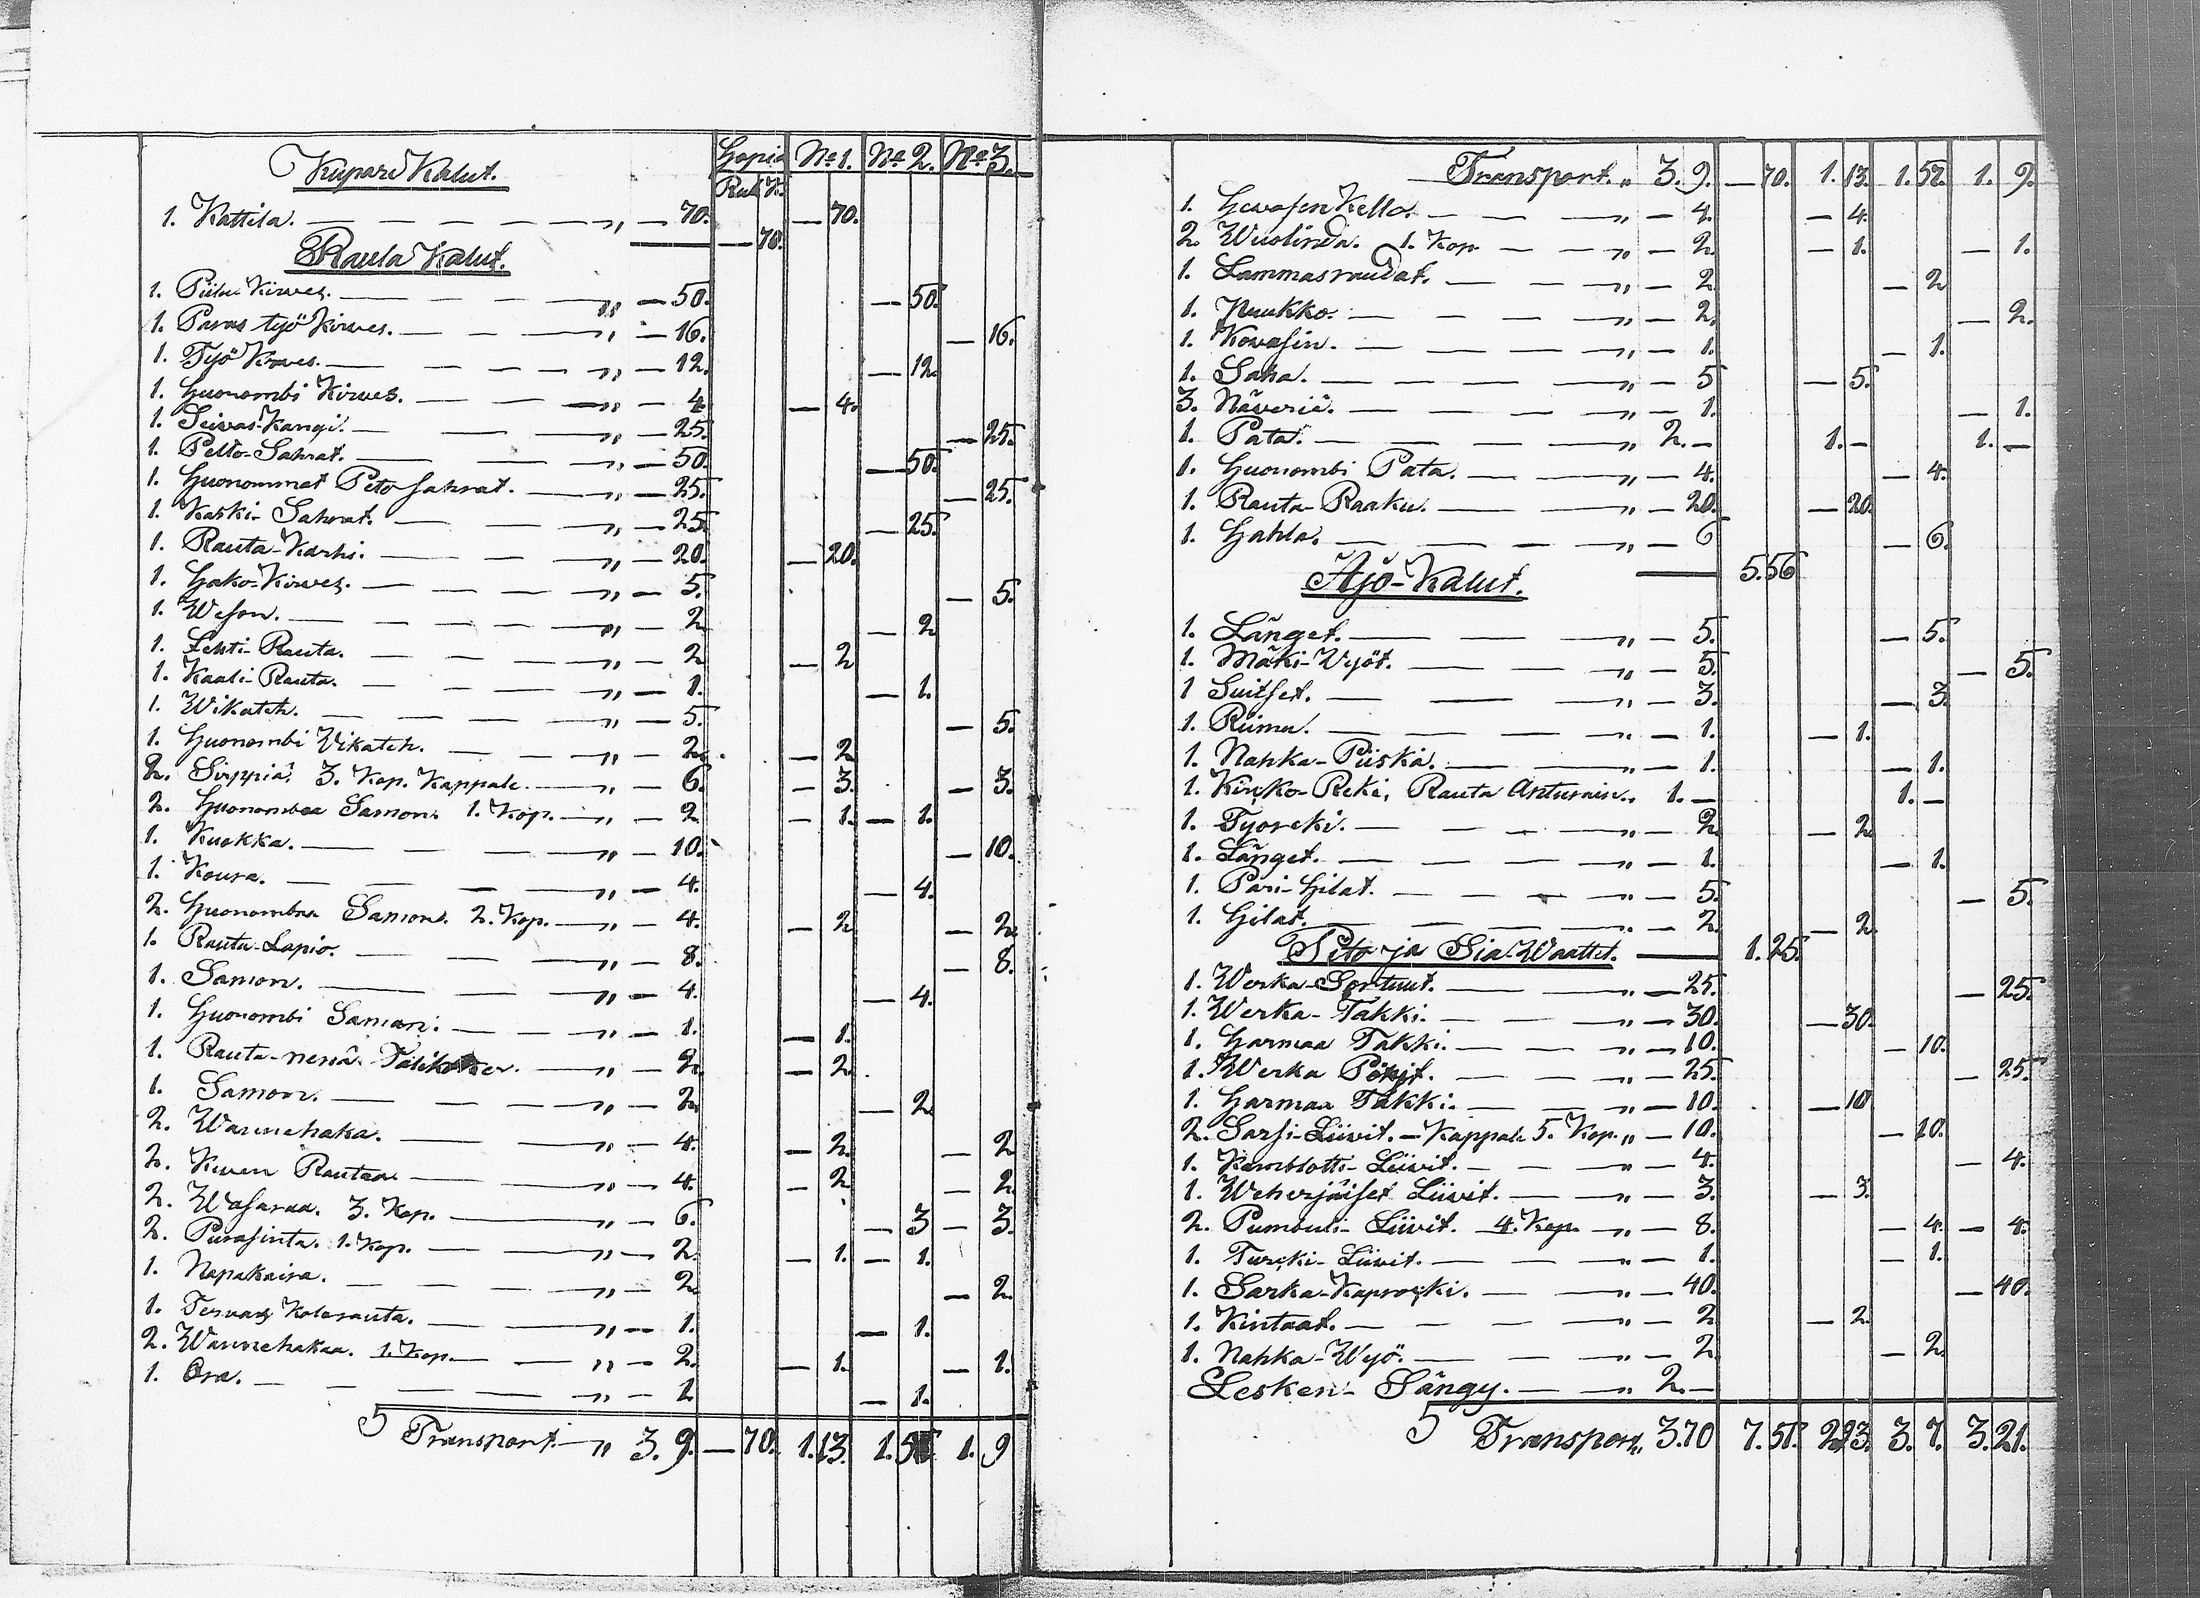 Kupari Kalut. Hopia No 1. No 2. No 3.
Rub K.
1. Kattila. — — — „ — 70. — 70.
— 70.
Rauta Kalut.
1. Piilu Kirves. — — — „ — 50. — 50.
1. Paras työ Kirves. — — — „ — 16. — 16.
1. Työ Kirves. — — — „ — 12. — 12.
1. Huonombi Kirves. — — „ — 4. — 4.
1. Seivas-Kangi. — — — „ — 25. — 25.
1. Pelto-Sahrat. — — — „ — 50. — 50.
1. Huonommat Pelto sahrat. — „ — 25. — 25.
1. Kaski-Sahrat. — — — „ — 25. — 25.
1. Rauta-Karhi. — — — „ — 20. — 20.
1. Hako-Kirves. — — — „ — 5. — 5.
1. Weson. — — — „ — 2. — 2
1. Lehti-Rauta. — — — „ — 2 — 2
1. Kaali-Rauta. — — — „ — 1. — 1.
1. Wikateh. — — — „ — 5. — 5.
1. Huonombi Vikateh. — — „ — 2. — 2
2. Sirppiä. 3. Kop. Kappale. — „ — 6. — 3. — 3.
2. Huonombaa Samon. 1. Kop. — „ — 2 — 1. — 1.
1. Kuokka. — — — „ — 10. — 10.
1. Koura. — — — „ — 4. — 4.
2. Huonombaa Samon. 2. Kop. — „ — 4. — 2 — 2.
1. Rauta-Lapio. — — — „ — 8. — 8.
1. Samon. — — — „ — 4. — 4.
1. Huonombi Samon. — — „ — 1. — 1.
1. Rauta-nenä — „ — 2. — 2.
1. Samon. — — — „ — 2. — 2
2. Wannehaka. — — „ — 4. — 2. — 2
2. Kiven Rautaa — — „ — 4. — 2 — 2.
2. Wasaraa. 3. Kop. — — „ — 6. — 3 — 3.
2. Purasinta. 1. Kop. — — „ — 2. — 1. — 1.
1. Napakaira. — — — „ — 2. — 2.
1. Kolorauta. — — „ — 1. — 1.
2. Wannehakaa. 1. Kop. — — „ — 2. — 1. — 1.
1. Ora. — — — „ — 1 — 1.
5 Transport. — „ 3. 9. — 70. 1. 13. 1. 1. 9
Transport. „ 3. 9. — 70. 1. 13. 1. 57. 1. 9.
1. Hevosen Kello. — — — „ — 4. — 4.
2. Wuolinda. 1. Kop — — „ — 2. — 1. — 1.
1. Lammasraudat. — — „ — 2 — 2
1. Nuukko. — — — „ — 2. — 2.
1. Kovasin. — — — „ — 1. — 1.
1. Saha. — — — „ — 5 — 5.
3. Näveriä. — — — „ — 1. — 1.
1. Pata. — — — „ 2. — 1. — 1. —
1. Huonombi Pata. — — „ — 4. — 4.
1. Rauta-Raaku. — — „ — 20. — 20.
1. Hahla. — — — „ — 6 — 6.
Ajo-Kalut. — 5.56
1. Länget. — — — „ — 5. — 5.
1. Mäki-Vyöt. — — — „ — 5. — 5.
1 Suitset. — — — „ — 3. — 3.
1. Riimu. — — — „ — 1. — 1.
1. Nahka-Piiska. — — „ — 1. — 1.
1. Kirko-Reki, Rauta Anturain. „ 1. — 1. —
1. Työreki. — — — „ — 2. — 2.
1. Länget. — — — „ — 1. — 1.
1. Pari-Hilat. — — — „ — 5. — 5.
1. Hilat. — — — „ — 2. — 2.
Pito ja Sia-Waattet. — 1.25.
1. Werka-Sortuut. — — „ — 25. — 25.
1. Werka-Takki. — — „ — 30. — 30.
1. Harmaa Takki. — — „ — 10. — 10.
1. Werka — — „ — 25. — 25.
1. Harmaa Takki. — — „ — 10. — 10
2. Sarsi-Liivit. — Kappale 5. Kop. „ — 10. — 10.
1. Kamblotti-Liivit. — — „ — 4. — 4.
1. Weherjäiset Liivit. — — „ — 3. — 3.
2. Pumbuli-Liivit. 4. Kop. — „ — 8. — 4. — 4.
1. Turcki-Liivit. — — „ — 1. — 1.
1. Sarka-Kaprocki. — — „ — 40. — 40.
1. Kintaat. — — — „ — 2 — 2.
1. Nahka-Wyö. — — „ — 2. — 2.
Lesken-Sängy. — — „ 2. —
5 Transport „ 3.70 7.51. 2.23. 3. 7. 3.21.